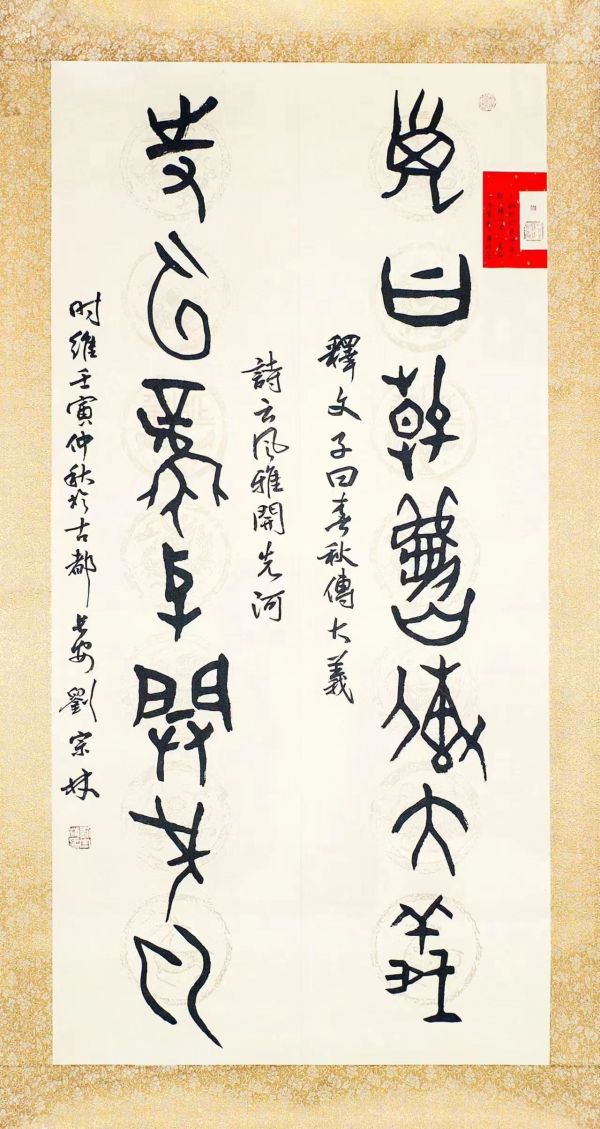 子曰春秋傳大義
釋文子曰春秋傳大義
詩云風雅開先河
詩云風雅開先河
时維壬寅仲秋於古都长安劉宗林